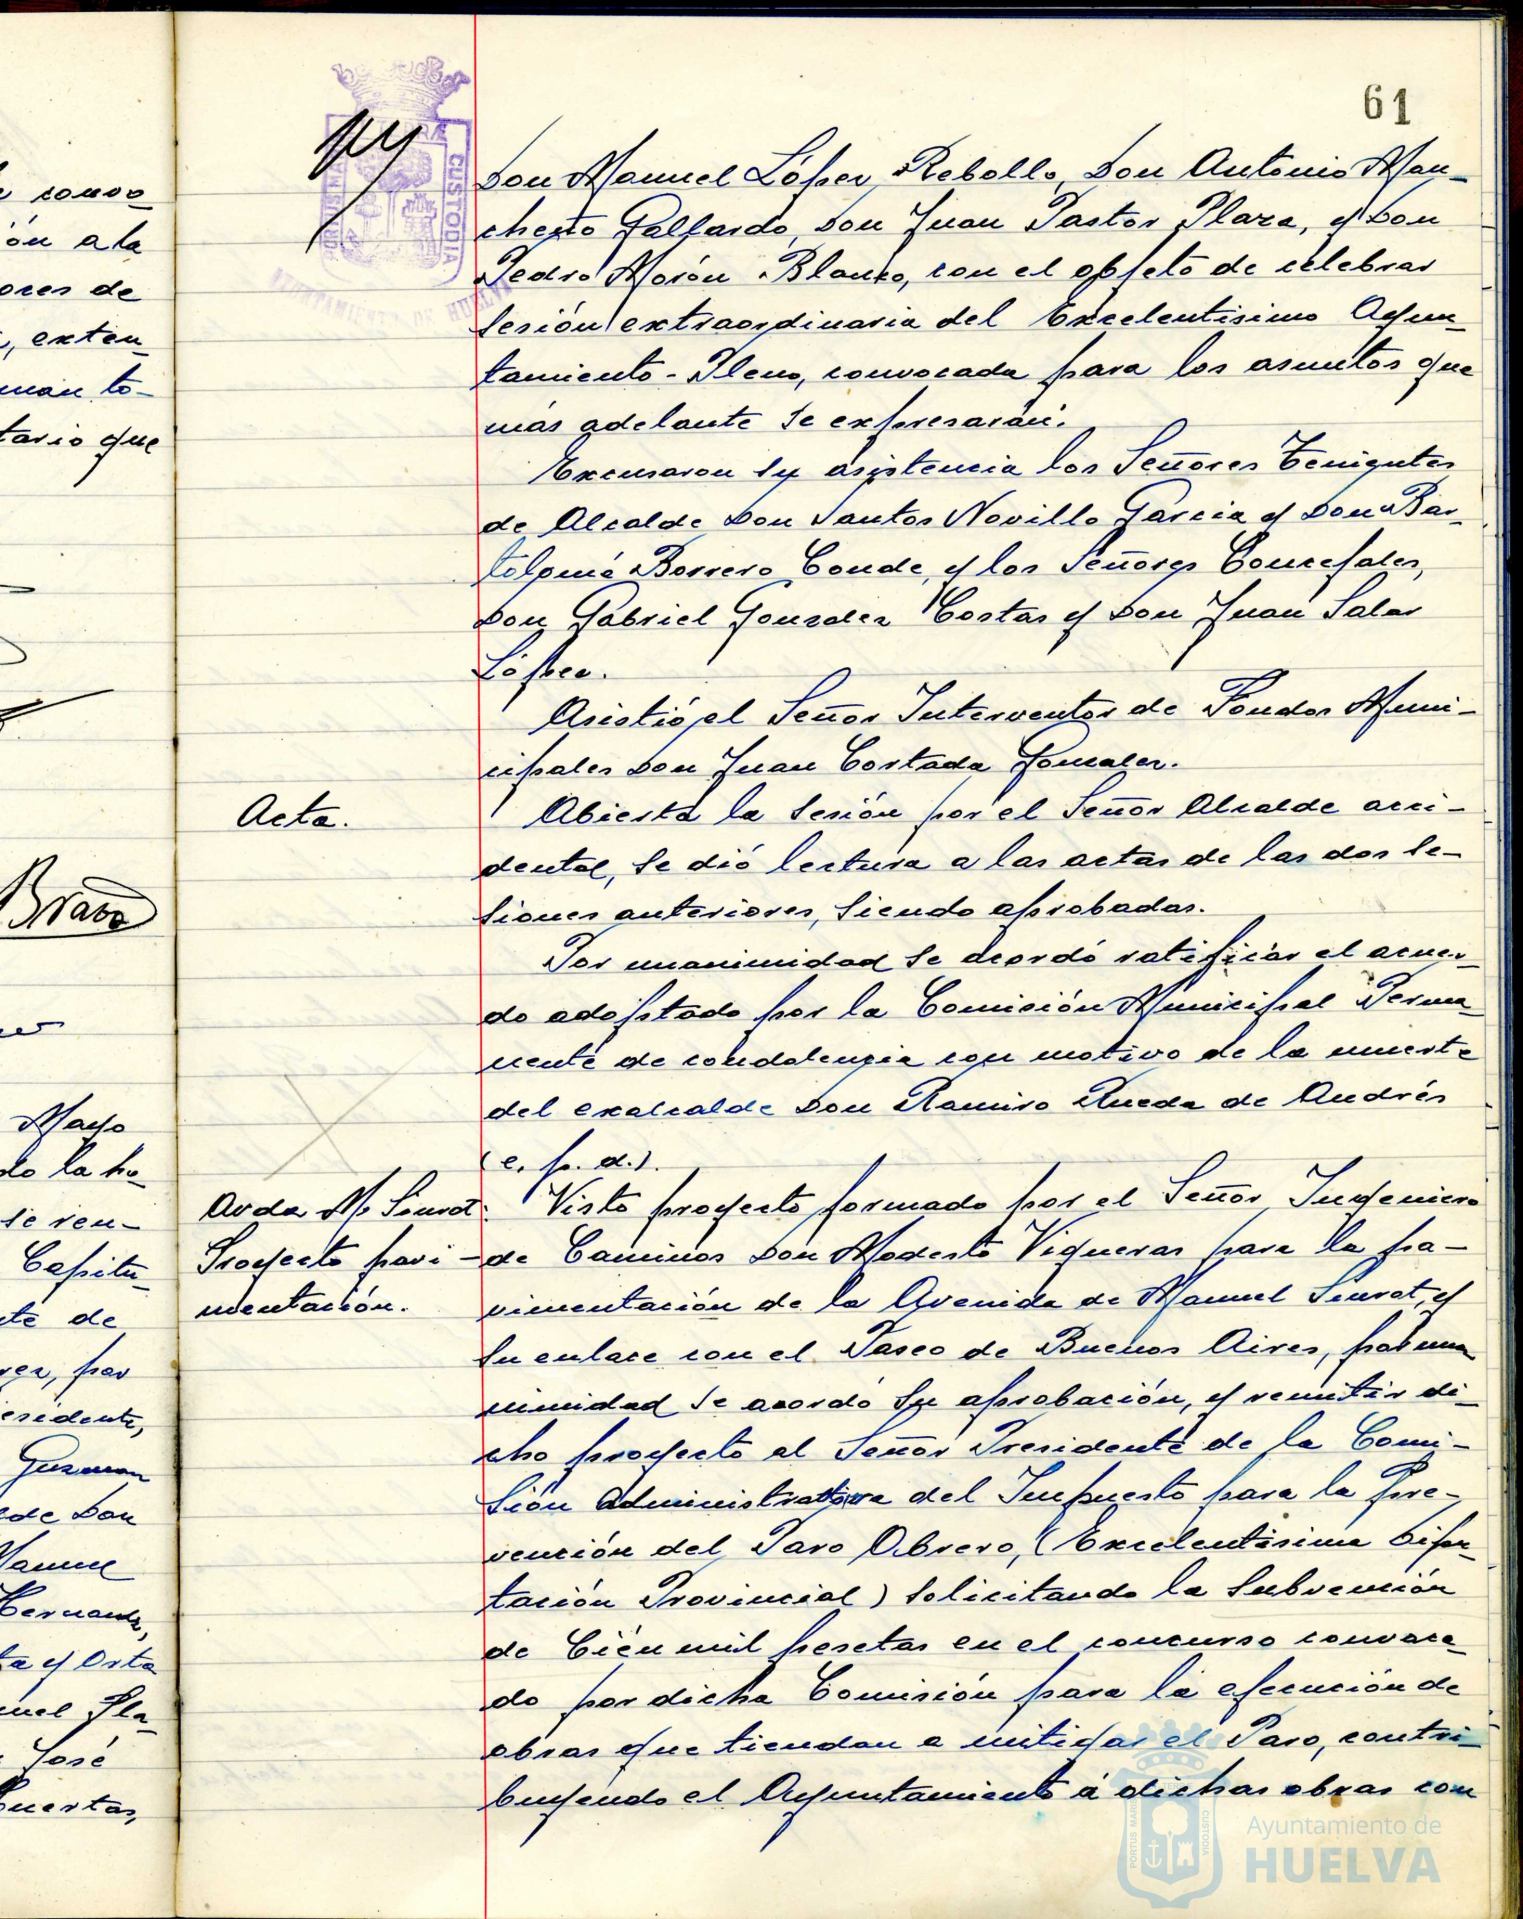 61
Don Manuel López Rebollo, Don Antonio Man-
cheño Gallardo, Don Juan Pastor Plaza, y Don
Pedro Morón Blanco, con el objeto de celebrar
sesión extraordinaria del Excelentisimo Ayun-
tamiento-Pleno, convocada para los asuntos que
más adelante se expresarán.
Excusaron su asistencia los Señores Tenientes
de Alcalde Don Santos Novillo Garcia y Don Bar-
tolomé Borrero Conde, y los Señores Concejales,
Don Gabriel Gonzalez Costas y Don Juan Salar
López.
Asistió el Señor Interventor de Fondos Muni-
cipales Don Juan Cortada Gonzalez.
Acta.
Abierta la sesión por el Señor Alcalde acci-
dental, se dió lectura a las actas de las dos se-
siones anteriores, siendo aprobadas.
Por unanimidad se acordó ratificar el acuer-
do adoptado por la Comisión Municipal Perma-
nente de condolencia con motivo de la muerte
del exalcalde Don Ramiro Rueda de Andrés
(e. p. d.).
Avda M. Siurot:
Proyecto pavi-
mentación.
Visto proyecto formado por el Señor Ingeniero
de Caminos Don Modesto Vigueras para la pa-
vimentación de la Avenida de Manuel Siurot, y
su enlace con el Paseo de Buenos Aires, por una
nimidad se acordó su aprobación, y remitir di-
cho proyecto al Señor Presidente de la Comi-
sión Administrativa del Impuesto para la Pre-
vención del Paro Obrero, (Excelentisima Dipu-
tación Provincial) solicitando la subvención
de Cién mil pesetas en el concurso convoca-
do por dicha Comisión para la ejecución de
obras que tiendan a mitigar el Paro, contri-
buyendo el Ayuntamiento á dichas obras con
PORTUS MARIS
CUSTODIA
AYUNTAMIENTO DE HUELVA
convo-
ón a la
ores de
, exten-
man to-
tario que
Bravo
Mayo
do la ho-
se reu-
Capitu-
te de
rez, por
esidente,
Guzman
lde Don
Manuel
Hernandez,
ta y Orta
uel Pla-
José
Cuertas,
Ayuntamiento de
HUELVA